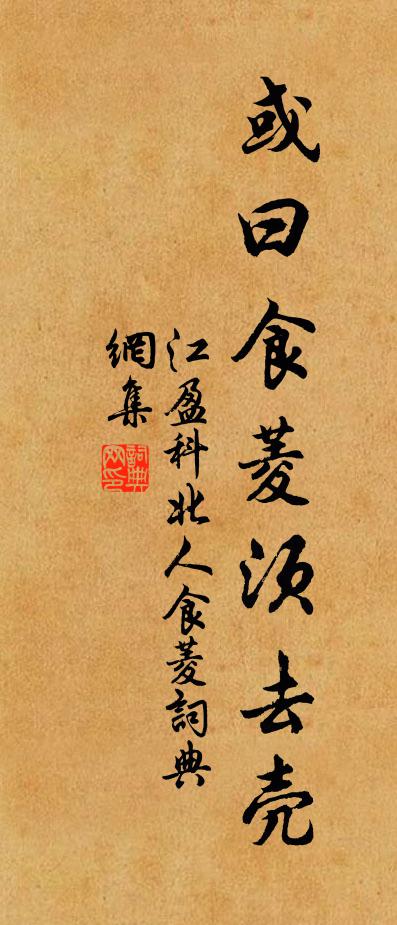 或曰食菱須去壳
江盈科北人食菱詞典
網集
詞典
网印